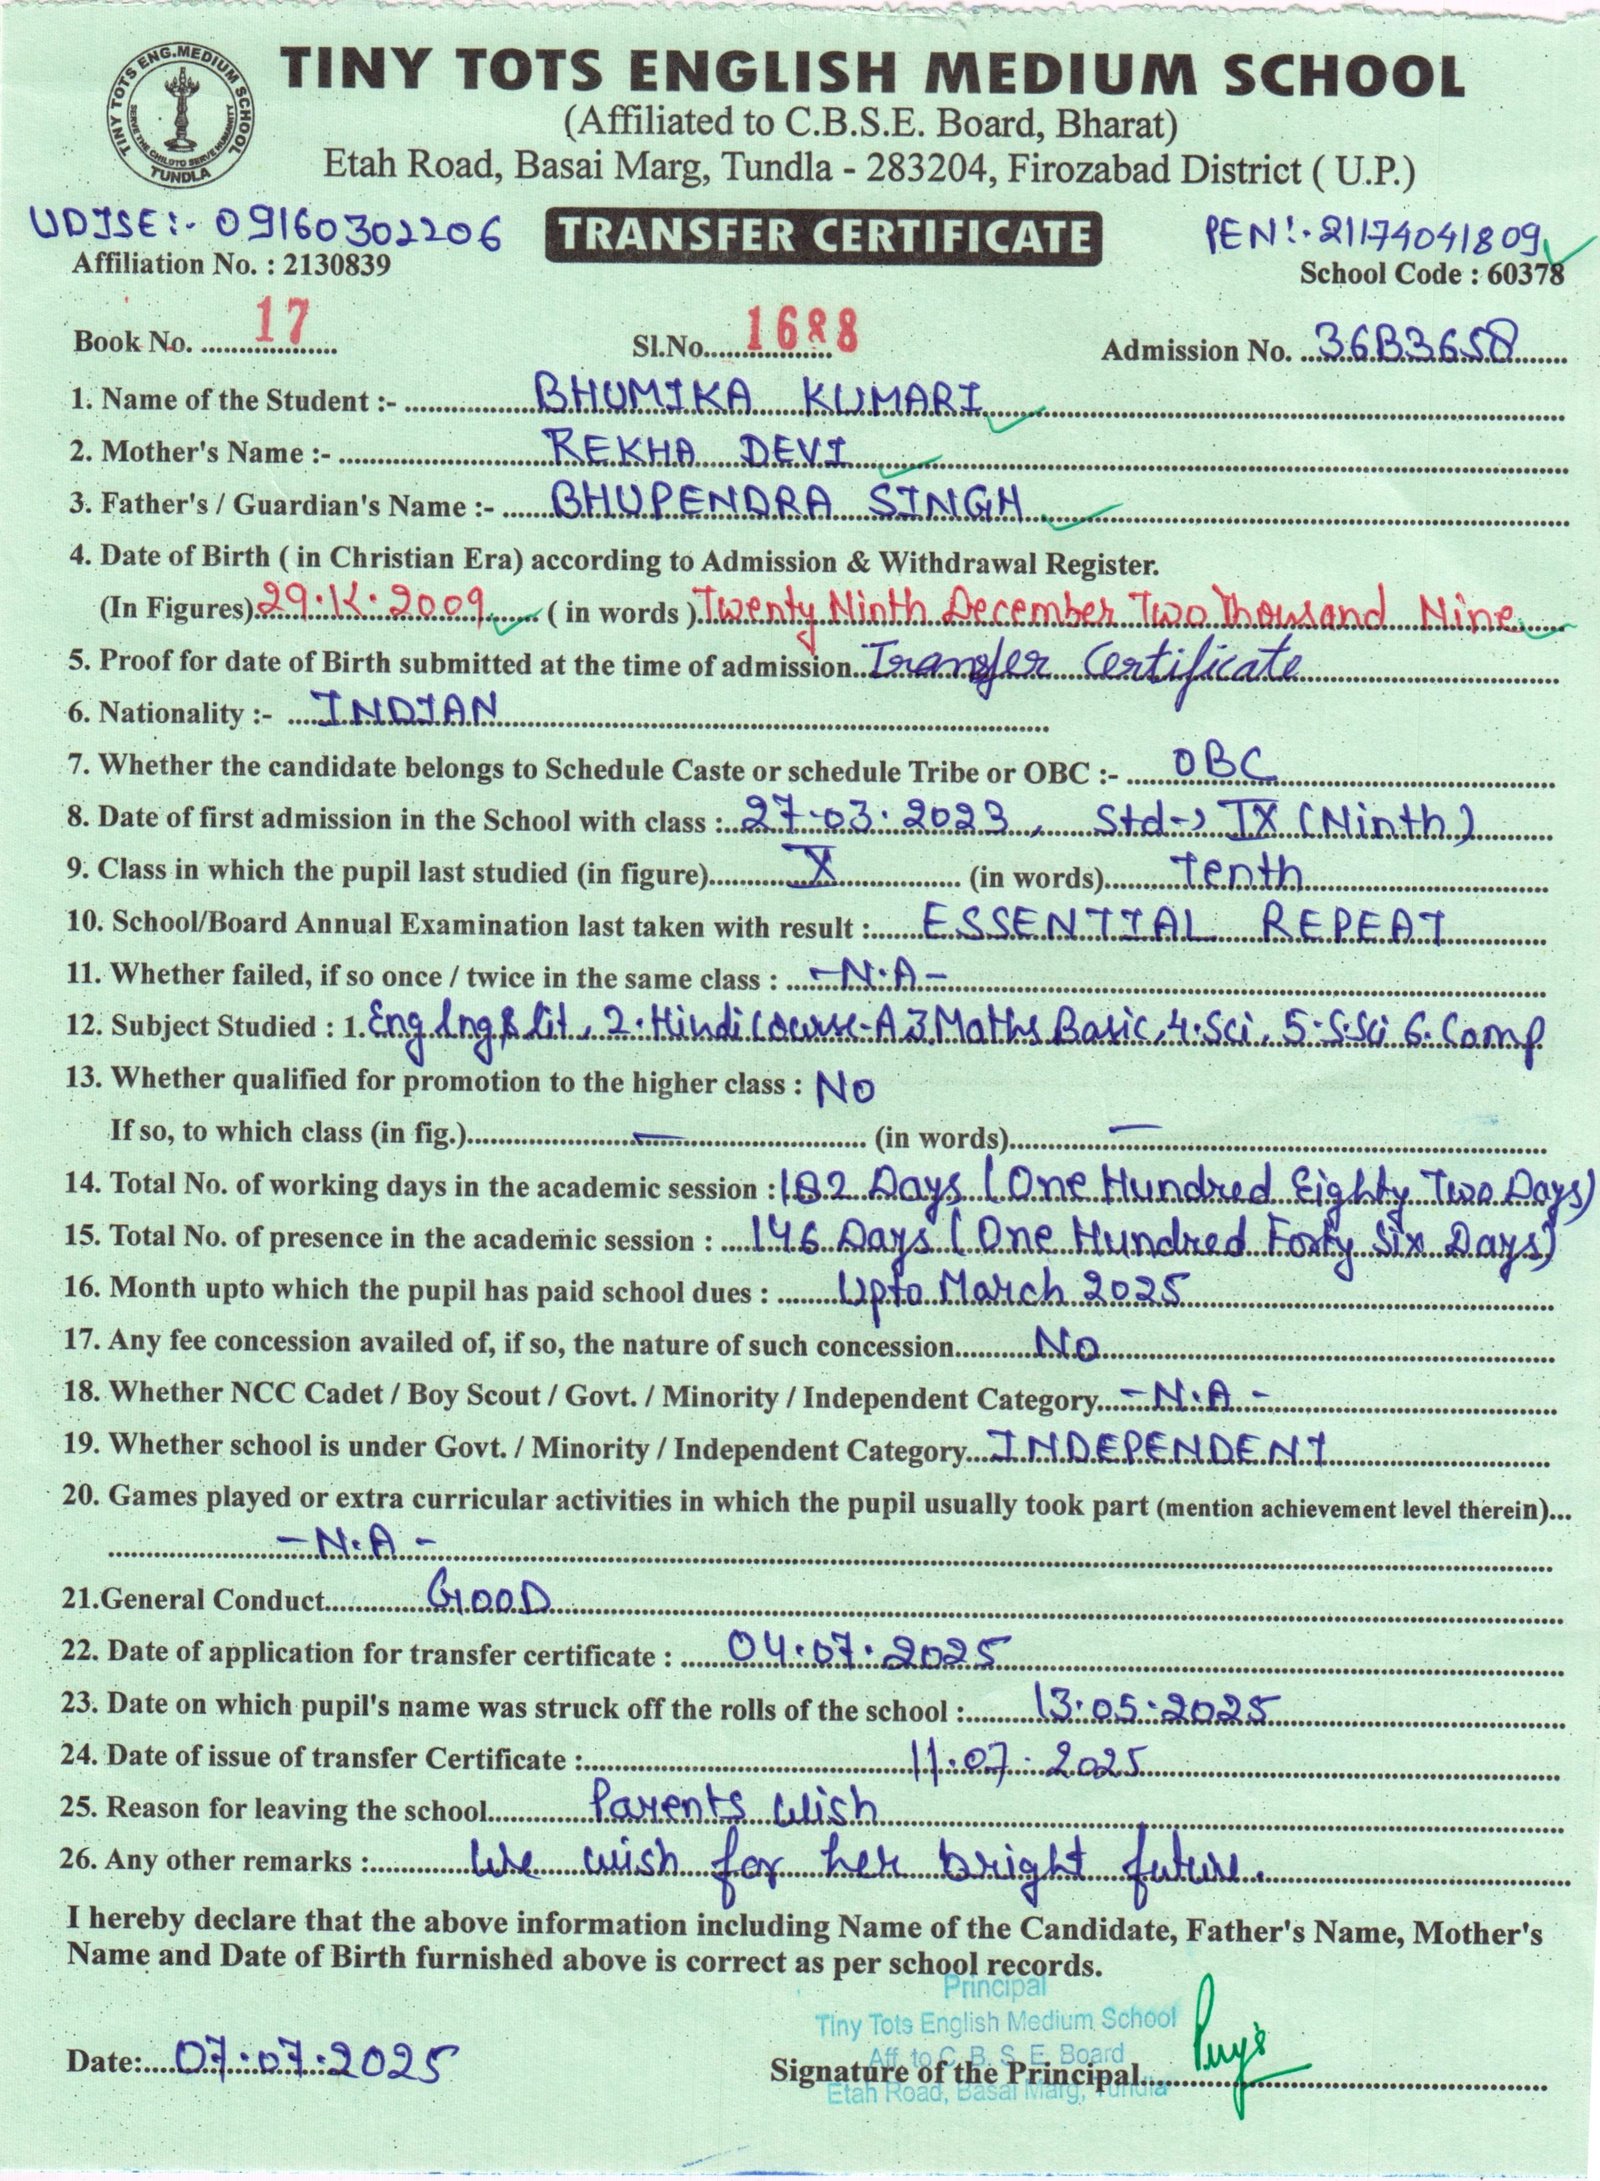 TINY TOTS ENGLISH MEDIUM SCHOOL
TINY TOTS ENG.MEDIUM SCHOOL
SERVE THE CHILD TO SERVE HUMANITY
TUNDLA
(Affiliated to C.B.S.E. Board, Bharat)
Etah Road, Basai Marg, Tundla - 283204, Firozabad District ( U.P.)
UDISE:- 09160302206 TRANSFER CERTIFICATE PEN:- 21174041809
Affiliation No. : 2130839 School Code : 60378
Book No. 17 Sl.No. 1688 Admission No. 36B3658
1. Name of the Student :- BHUMIKA KUMARI
2. Mother's Name :- REKHA DEVI
3. Father's / Guardian's Name :- BHUPENDRA SINGH
4. Date of Birth ( in Christian Era) according to Admission & Withdrawal Register.
(In Figures) 29.12.2009 ( in words ) Twenty Ninth December Two Thousand Nine
5. Proof for date of Birth submitted at the time of admission Transfer Certificate
6. Nationality :- INDIAN
7. Whether the candidate belongs to Schedule Caste or schedule Tribe or OBC :- OBC
8. Date of first admission in the School with class : 27.03.2023, Std→ IX (Ninth)
9. Class in which the pupil last studied (in figure) X (in words) Tenth
10. School/Board Annual Examination last taken with result : ESSENTIAL REPEAT
11. Whether failed, if so once / twice in the same class : -N.A-
12. Subject Studied : 1. Eng Lng & Lit, 2. Hindi Course-A 3. Maths Basic, 4. Sci, 5. S.Sci 6. Comp
13. Whether qualified for promotion to the higher class : NO
If so, to which class (in fig.) — (in words) —
14. Total No. of working days in the academic session : 182 Days (One Hundred Eighty Two Days)
15. Total No. of presence in the academic session : 146 Days (One Hundred Forty Six Days)
16. Month upto which the pupil has paid school dues : Upto March 2025
17. Any fee concession availed of, if so, the nature of such concession No
18. Whether NCC Cadet / Boy Scout / Govt. / Minority / Independent Category -N.A-
19. Whether school is under Govt. / Minority / Independent Category INDEPENDENT
20. Games played or extra curricular activities in which the pupil usually took part (mention achievement level therein)...
-N.A-
21.General Conduct GOOD
22. Date of application for transfer certificate : 04.07.2025
23. Date on which pupil's name was struck off the rolls of the school : 13.05.2025
24. Date of issue of transfer Certificate : 11.07.2025
25. Reason for leaving the school Parents wish
26. Any other remarks : We wish for her bright future.
I hereby declare that the above information including Name of the Candidate, Father's Name, Mother's
Name and Date of Birth furnished above is correct as per school records.
Principal
Tiny Tots English Medium School
Aff. to C. B. S. E. Board
Etah Road, Basai Marg, Tundla
Date: 07.07.2025 Signature of the Principal